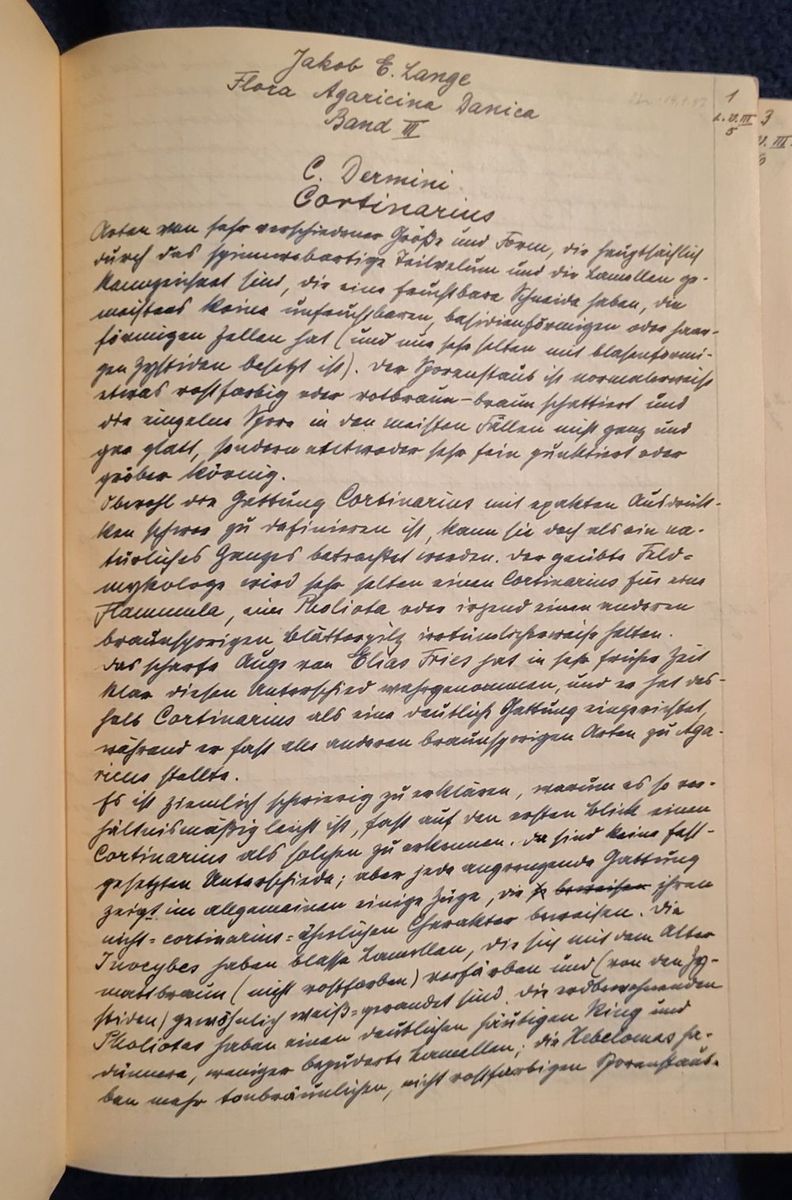 Jakob E. Lange
Flora Agaricina Danica
Band III
1
L.V.III
5
3
V. III.
6
C. Dermini.
Cortinarius
Arten von sehr verschiedener Größe und Form, die hauptsächlich
durch das spinnwebartige Teilvelum und die Lamellen ge-
kennzeichnet sind, die eine fruchtbare Schneide haben, die
meistens keine unfruchtbaren, basidienförmigen oder haar-
förmigen Zellen hat (und nur sehr selten mit blasenförmi-
gen Zystiden besetzt ist). Der Sporenstaub ist normalerweise
etwas rostfarbig oder rotbraun-braun schattiert und
die einzelne Spore in den meisten Fällen nicht ganz und
gar glatt, sondern entweder sehr fein punktiert oder
gröber körnig.
Obwohl die Gattung Cortinarius mit exakten Ausdrük-
ken schwer zu definieren ist, kann sie doch als ein na-
türliches Ganzes betrachtet werden. Der geübte Feld-
mykologe wird sehr selten einen Cortinarius für eine
Flammula, eine Pholiota oder irgend einen anderen
braunsporigen Blätterpilz irrtümlicherweise halten.
Das scharfe Auge von Elias Fries hat in sehr früher Zeit
klar diesen Unterschied wahrgenommen, und er hat des-
halb Cortinarius als eine deutliche Gattung eingerichtet,
während er fast alle anderen braunsporigen Arten zu Aga-
ricus stellte.
Es ist ziemlich schwierig zu erklären, warum es so ver-
hältnismäßig leicht ist, fast auf den ersten Blick einen
Cortinarius als solchen zu erkennen. Da sind keine fest-
gesetzten Unterschiede; aber jede angrenzende Gattung
zeigt im allgemeinen einige Züge, die beweisen ihren
nicht-cortinarius-ähnlichen Charakter beweisen. Die
Inocybes haben blasse Lamellen, die sich mit dem Alter
mattbraun (nicht rostfarben) verfärben und (von den Zy-
stiden) gewöhnlich weiß-gerandet sind. Die erdbewohnenden
Pholiotas haben einen deutlichen häutigen Ring und
dünnere, weniger bepuderte Lamellen; die Hebelomas ha-
ben mehr tonbräunlichen, nicht rostfarbigen Sporenstaub.